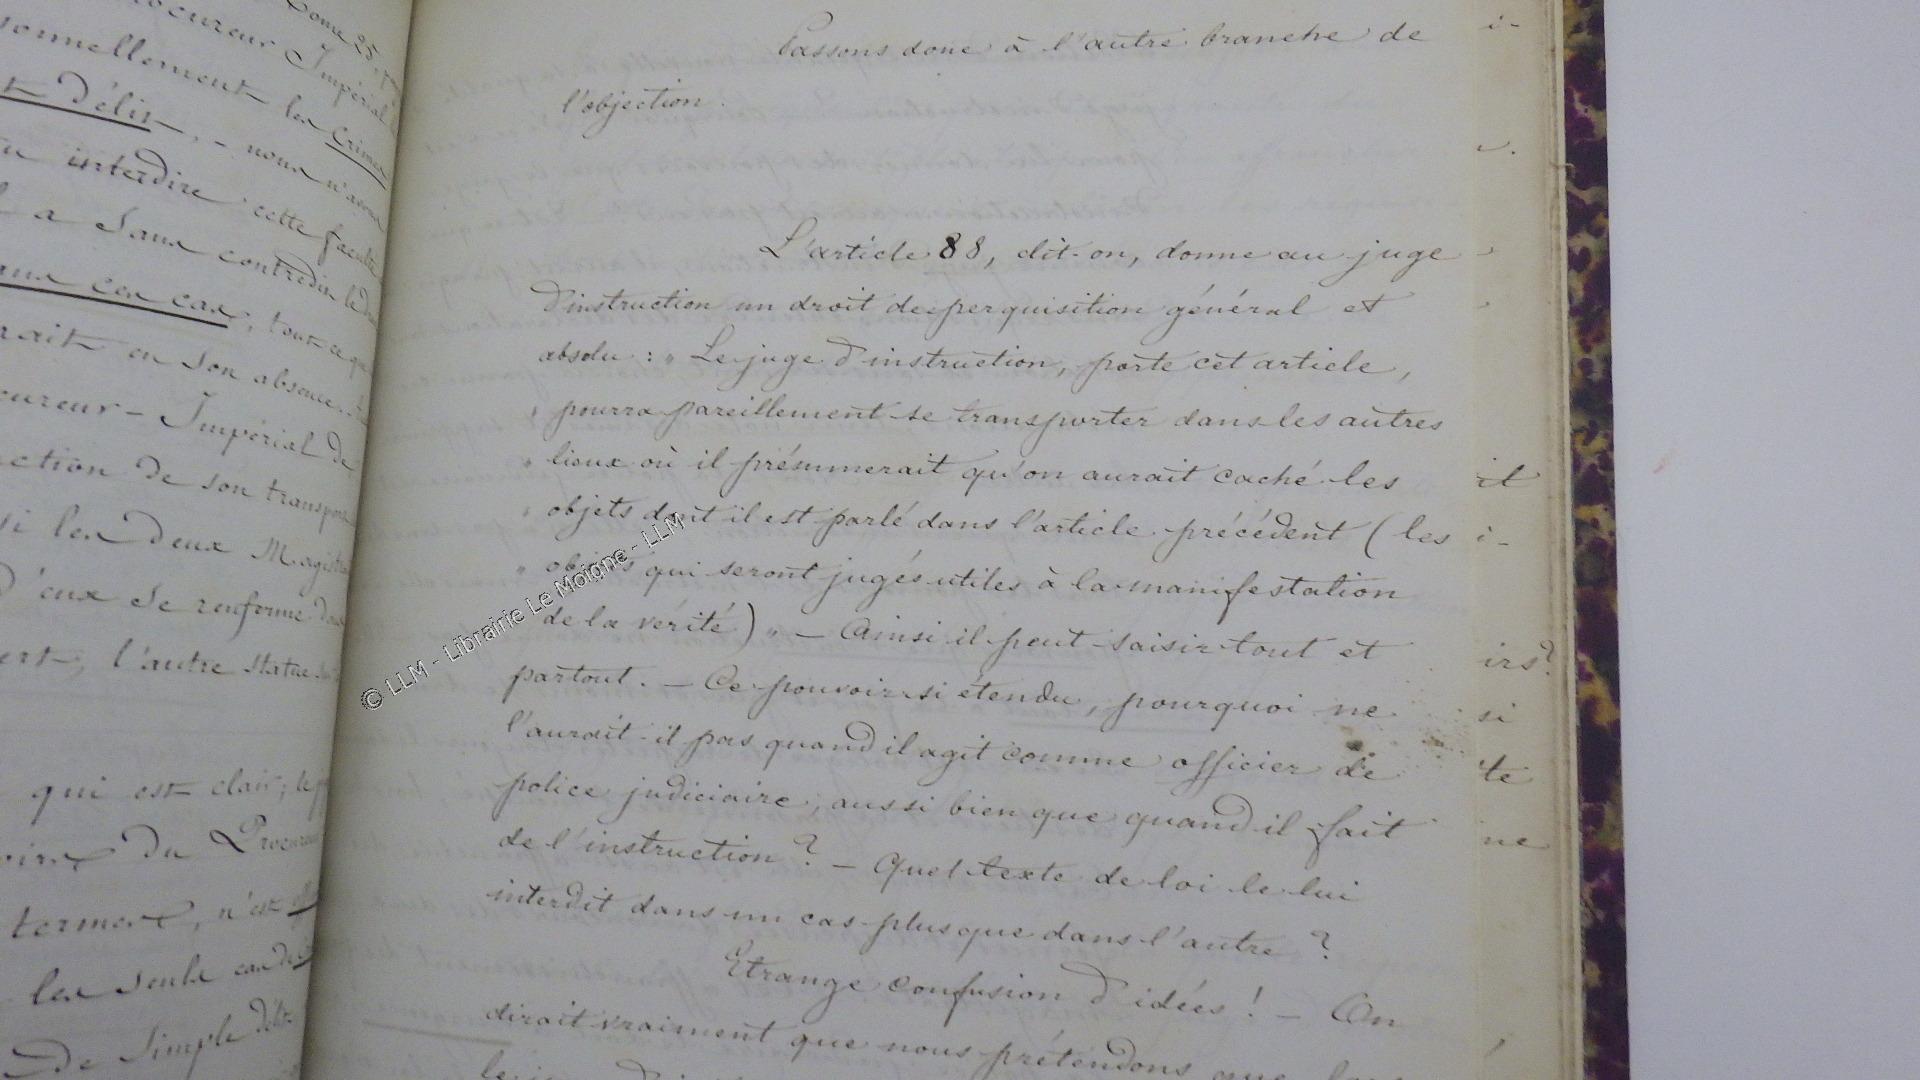 Tome 25, p
Procureur Impérial
sonnellement les Crimes
et Délits, - nous n'avons
interdire cette faculté
l a Sans contredire le d
ans ces cas, tout ce que
rait en Son absence.
cureur-Impérial de
ction de son transport
si les Deux Magistra
D'eux Se renferme Da
ert, l'autre Statue
qui est clair, le p
oire Du Procureur
termes, n'est
les Seuls cas de
De Simple Délit
Passons donc à l'autre branche de
l'objection.
L'article 88, dit-on, donne au juge
D'instruction un droit de perquisition général et
absolu : " Le juge D'instruction, porte cet article,
" pourra pareillement se transporter dans les autres
" lieux où il présumerait qu'on aurait caché les
" objets dont il est parlé dans l'article précédent ( les
" objets qui seront jugés utiles à la manifestation
de la vérité) " - Ainsi il peut saisir tout et
partout. - Ce pouvoir si étendu, pourquoi ne
l'aurait-il pas quand il agit comme officier de
police judiciaire, aussi bien que quand il fait
de l'instruction ? - Quel texte de loi le lui
interdit dans un cas plus que dans l'autre ?
Etrange confusion D'idées ! - On
dirait vraiment que nous prétendons que
i-
il
i-
irs?
si
te
ne
© LLM - Librairie Le Moigne - LLM